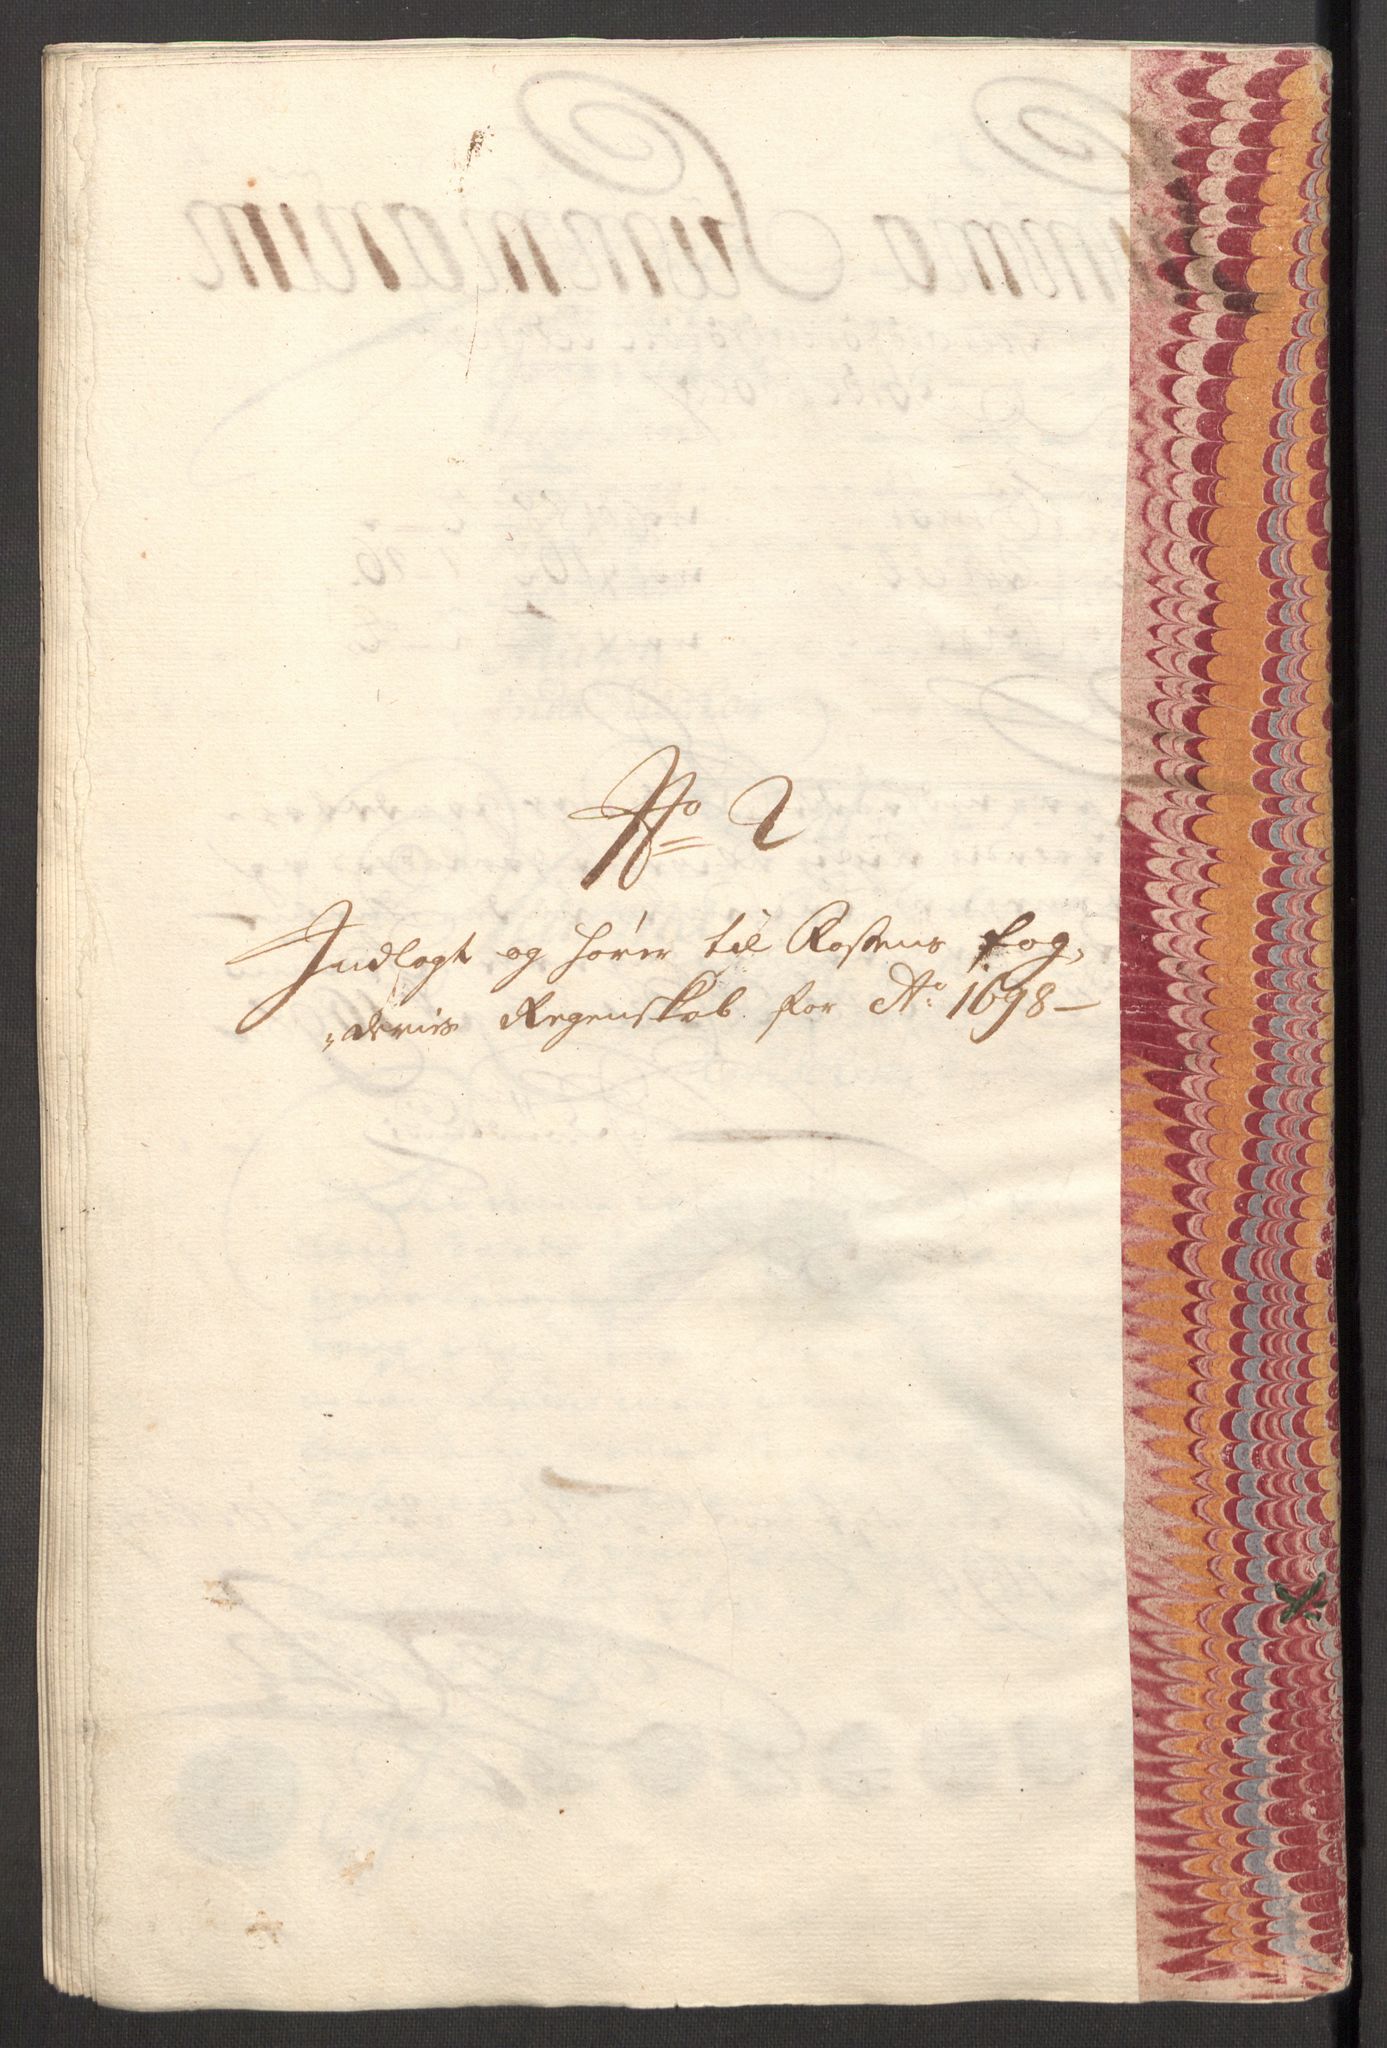 No 2
Indlagt og hører til Rosens fog,
„deries Regenskab for Ao 1698 –